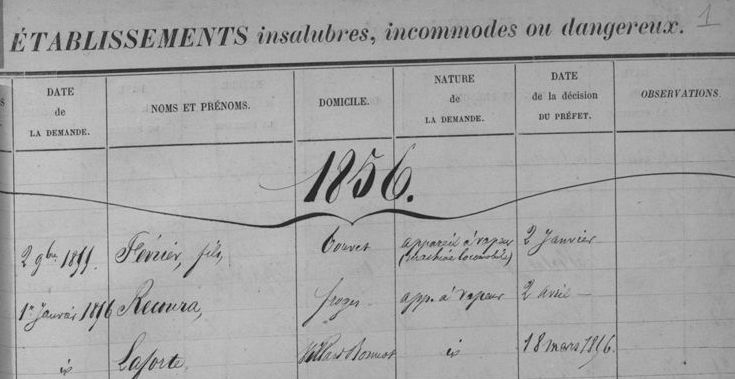 1
ÉTABLISSEMENTS insalubres, incommodes ou dangereux.
DATE de LA DEMANDE.
NOMS ET PRÉNOMS.
DOMICILE.
NATURE de LA DEMANDE.
DATE de la décision DU PRÉFET.
OBSERVATIONS.
1856.
2 9bre 1855. Février, fils, Touvet appareil à vapeur (machine locomobile) 2 Janvier
1er Janvier 1856 Recoura, Froges app. à vapeur 2 avril
id Laforte, Villard Bonnot id 18 mars 1856.